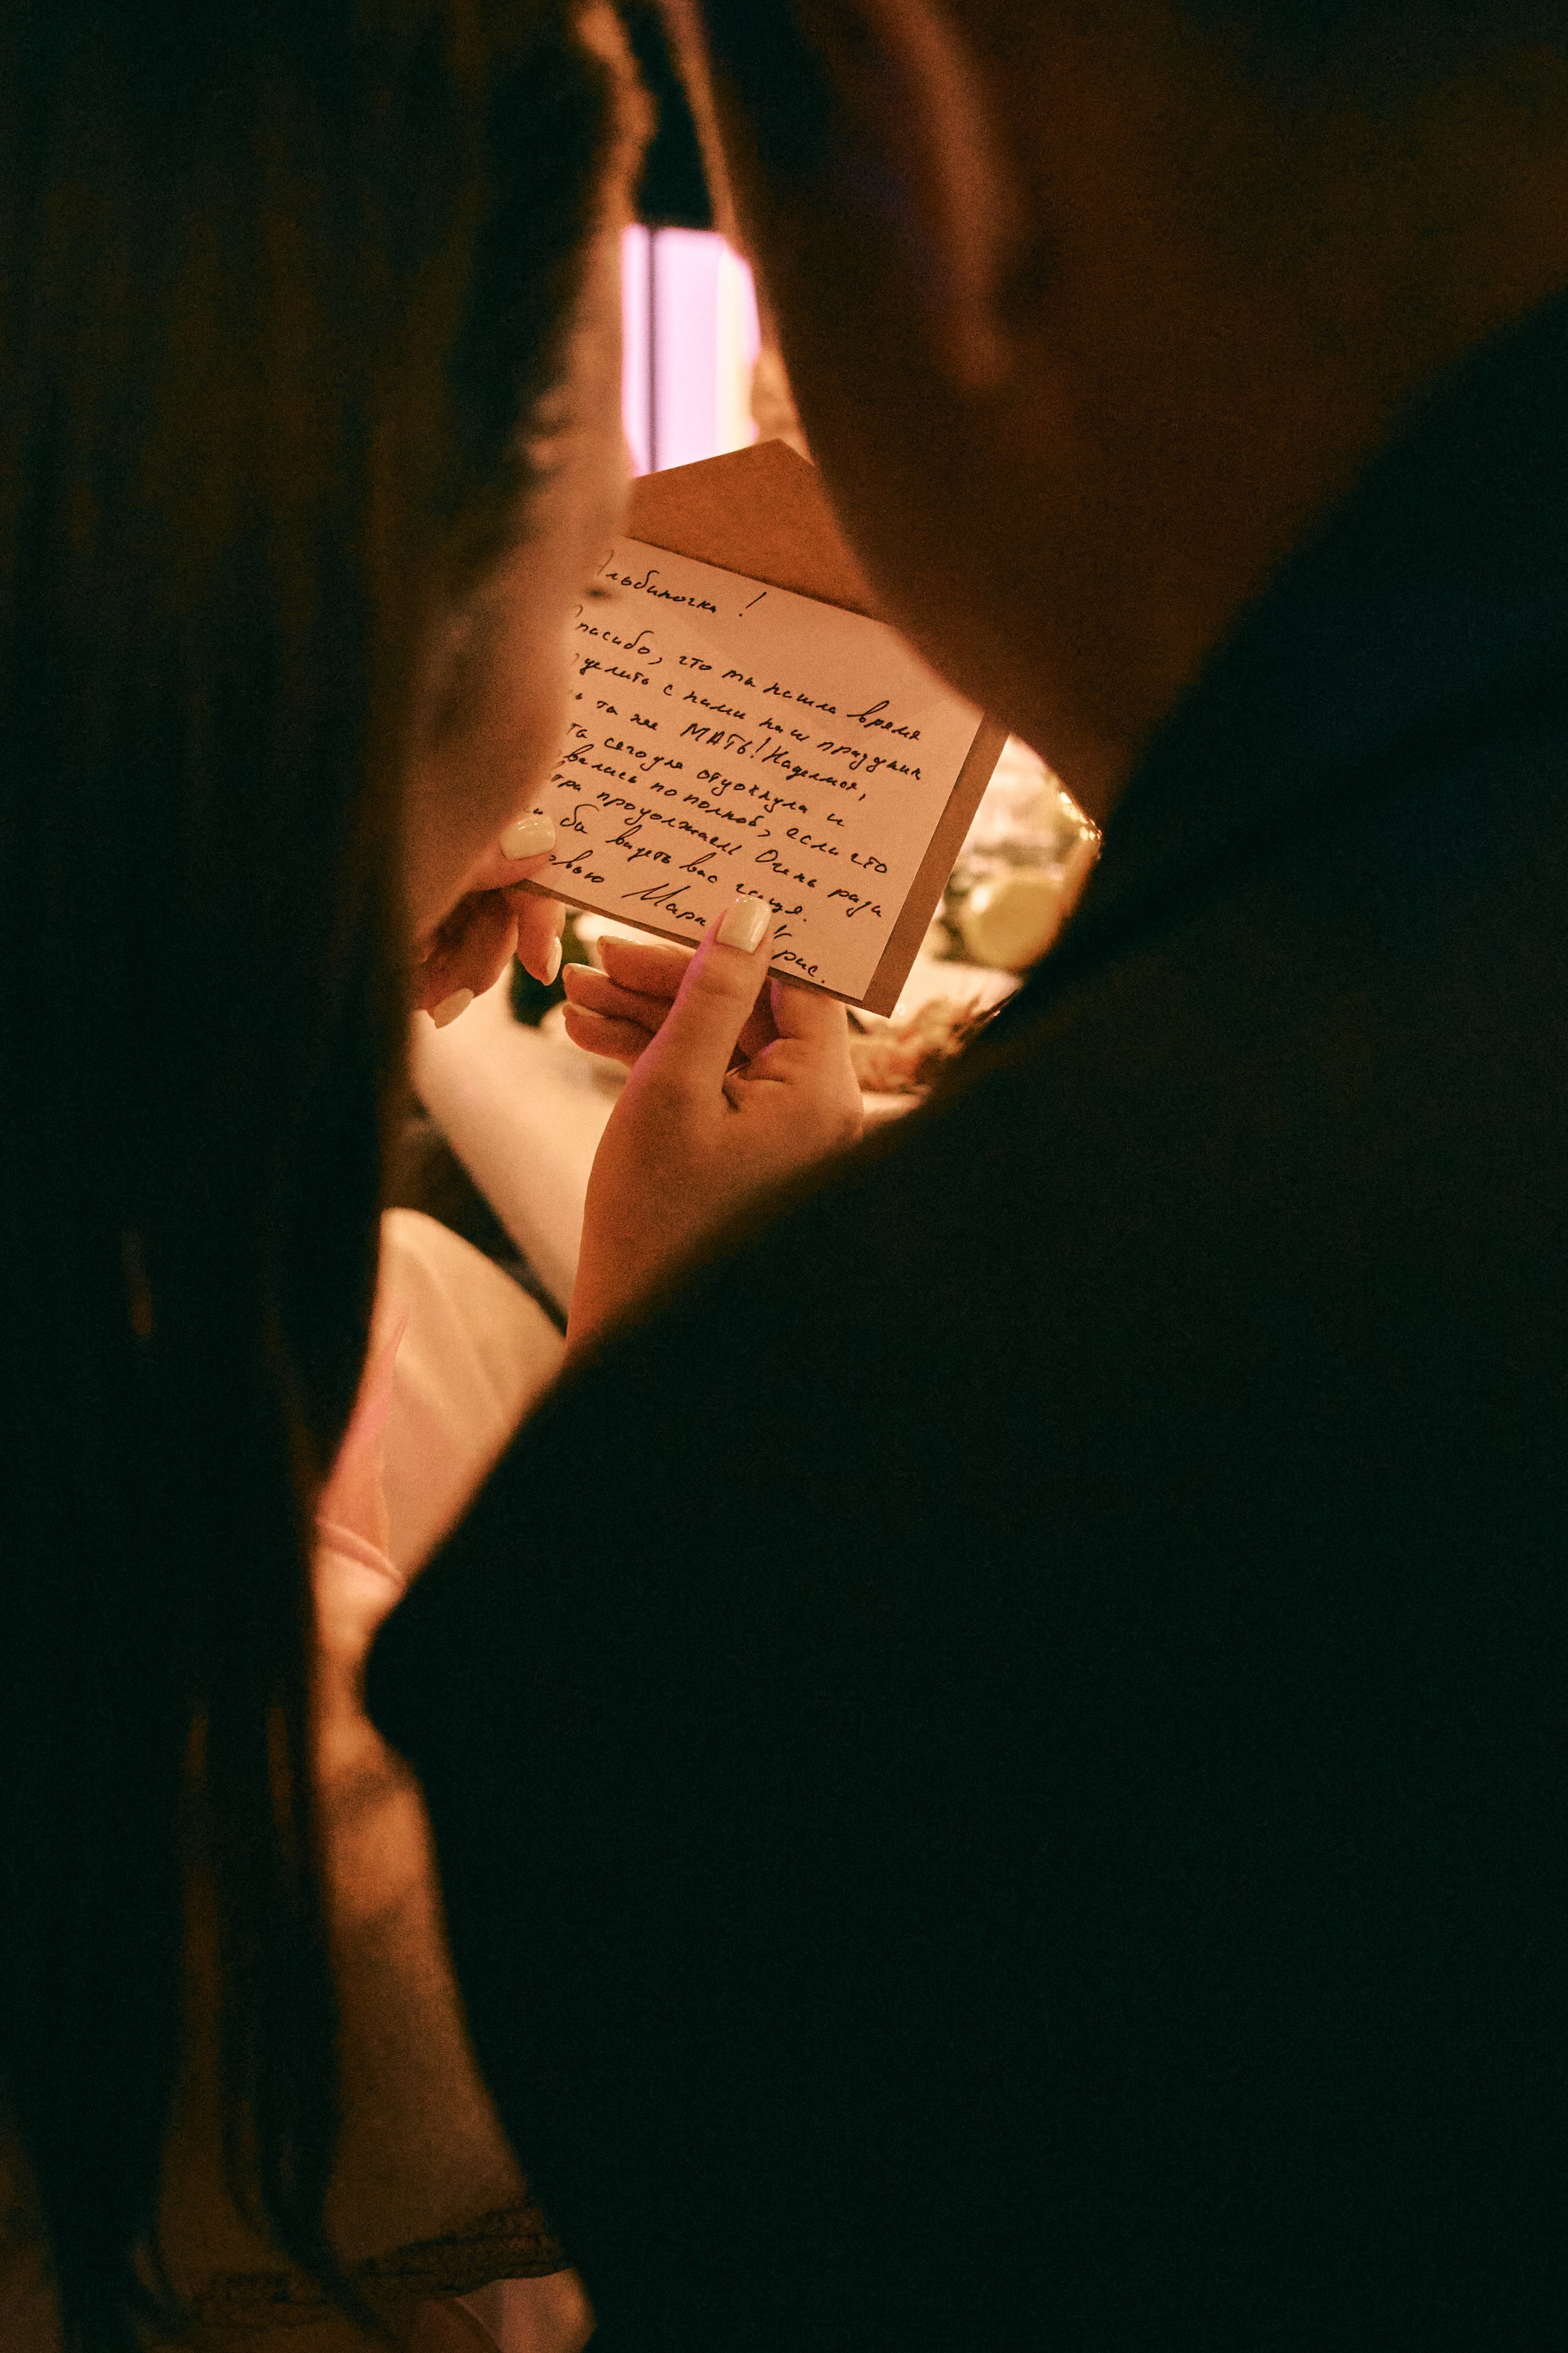 Альбиночка!
Спасибо, что ты нашла время
делить с нами наш праздник
ь та же МАТЬ! Надеемся,
та сегодня отдохнула и
вались по полной, если что
тра продолжаем! Очень рады
бы видеть вас чаще.
овью Мари Крис.